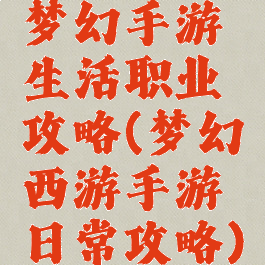 梦幻手游
生活职业
攻略(梦幻
西游手游
日常攻略)